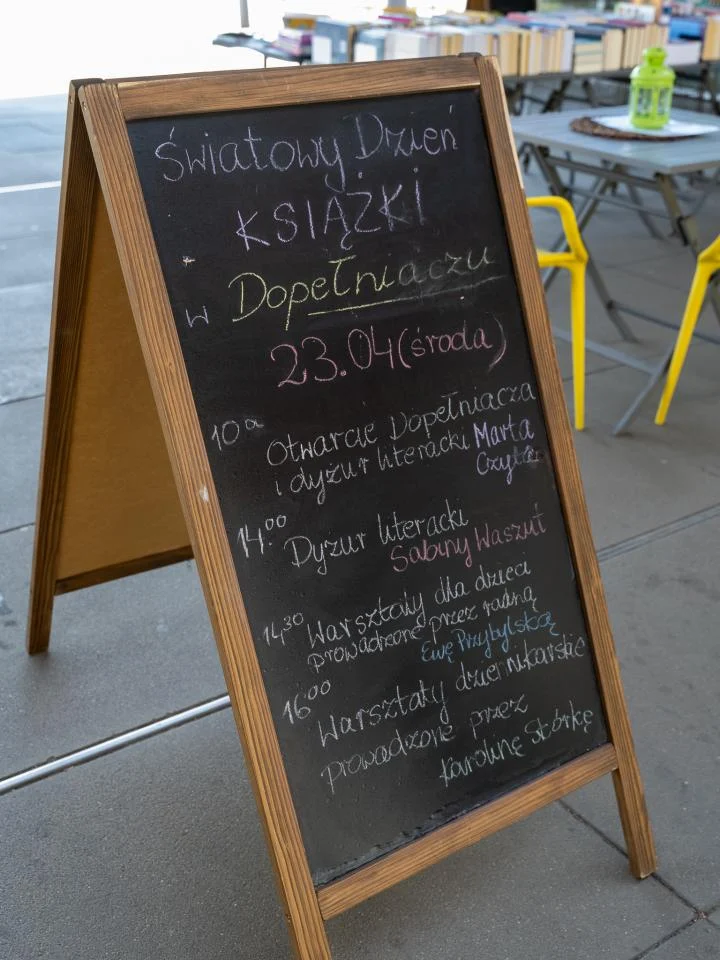 Światowy Dzień
KSIĄŻKI
w Dopełniaczu
23.04 (środa)
10 Otwarcie Dopełniacza
i dyżur literacki Marta
14:00 Dyżur literacki
Sabiny Waszut
14,30 Warsztaty dla dzieci
prowadzone przez radną
Ewę Przybylską
16:00 Warsztaty dziennikarskie
prowadzone przez
Karolinę Stórkę